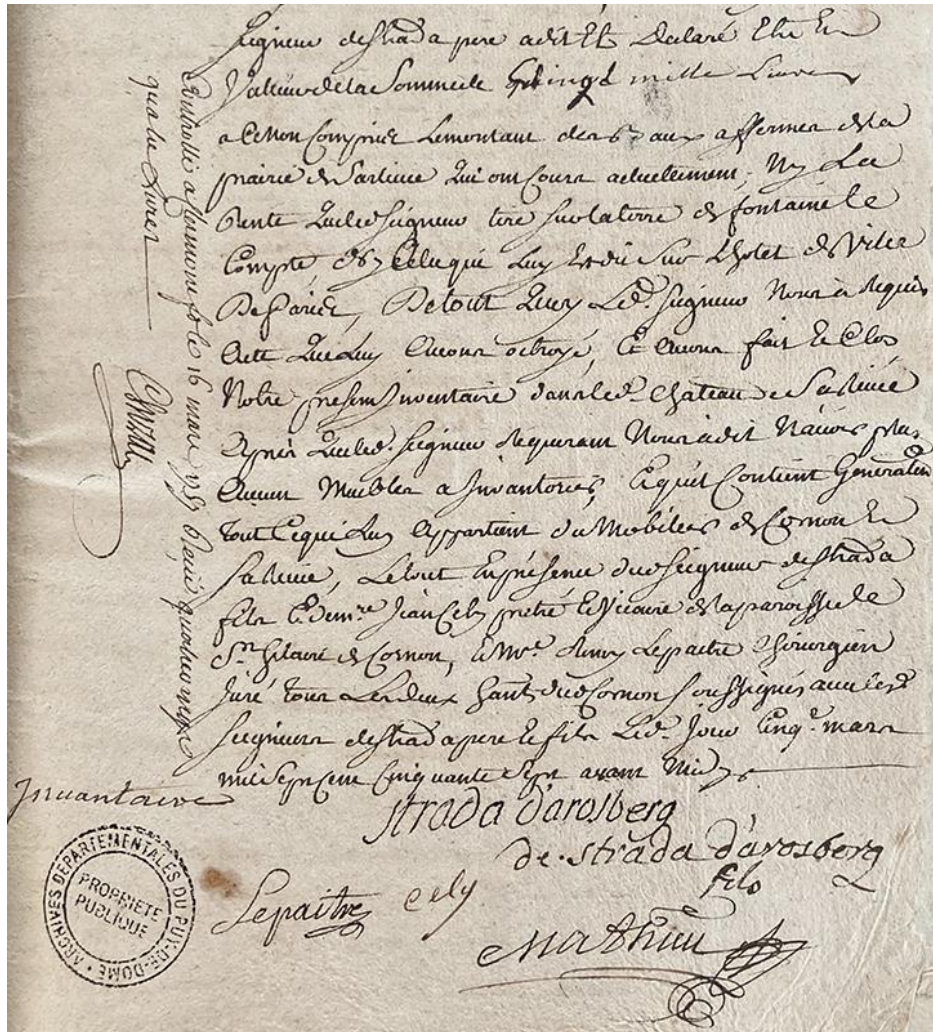 seigneur de Strada pere a dit Et Declaré Etre En
Valleur de la Somme de mille Livres
a Ce Non Compris Le montant des Baux a ferme de la
prairie de Sarlieve Qui ont Cours actuellement, Ny La
Rente Que led Seigneur tire sur la terre de fontaine le
Compte, Celle qui Luy Est düe Sur L'hotel de Ville
De Paris, De tout Quoy Led. Seigneur Nous a Requis
acte Que Luy avons octroyé, Et avons fait Et Clos
Notre present Inventaire dans led. Chateau de Sarlieve
apres Que led. Seigneur Requerant Nous a dit N'avoir plus
aucun Meubles a Inventorier, Et qu'il Contient Generalem
tout Ce qui Luy appartient du Mobilier de Cornon Et
Sarlieve, Le tout En présence dud Seigneur de Strada
fils Et de mre Jean Cely pretre Et Vicaire de la paroisse de
St hilaire de Cornon, Et Mre. Remy Lepaitre Chirurgien
Juré tous Les deux hants dud Cornon Soussignés avec lesd
Seigneurs de Strada pere Et fils Led. Jour Cinq. mars
mil Sept Cent Cinquante Sept avant Midy
Controllé a Clermont fd le 16 mars 1757 Reçu quatre vingt
quatre Livres
Inuantaire
strada d'arosberg
de. strada d'arosberg
fils
Lepaitre cely
Mathieu
ARCHIVES DEPARTEMENTALES DU PUY-DE-DOME
PROPRIETE
PUBLIQUE